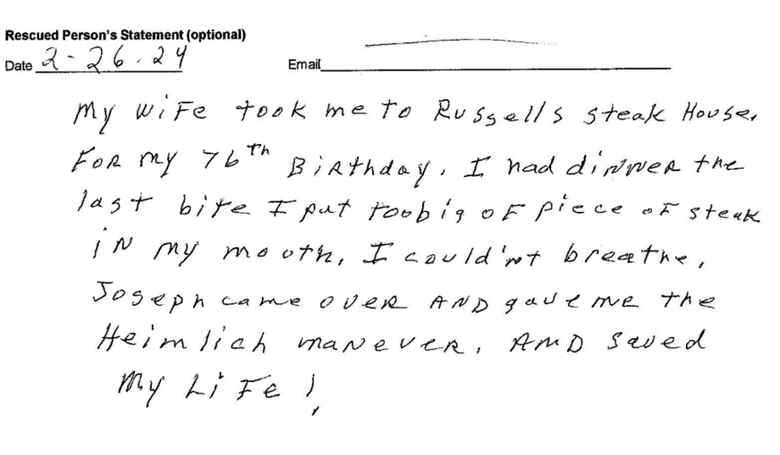 Rescued Person's Statement (optional)
Date 2-26.24 Email
My wife took me to Russells steak House,
For my 76th Birthday. I had dinner the
last bite I put too big of piece of steak
in my mouth, I could'nt breathe,
Joseph came over AND gave me the
Heimlich manever. AND saved
my Life!